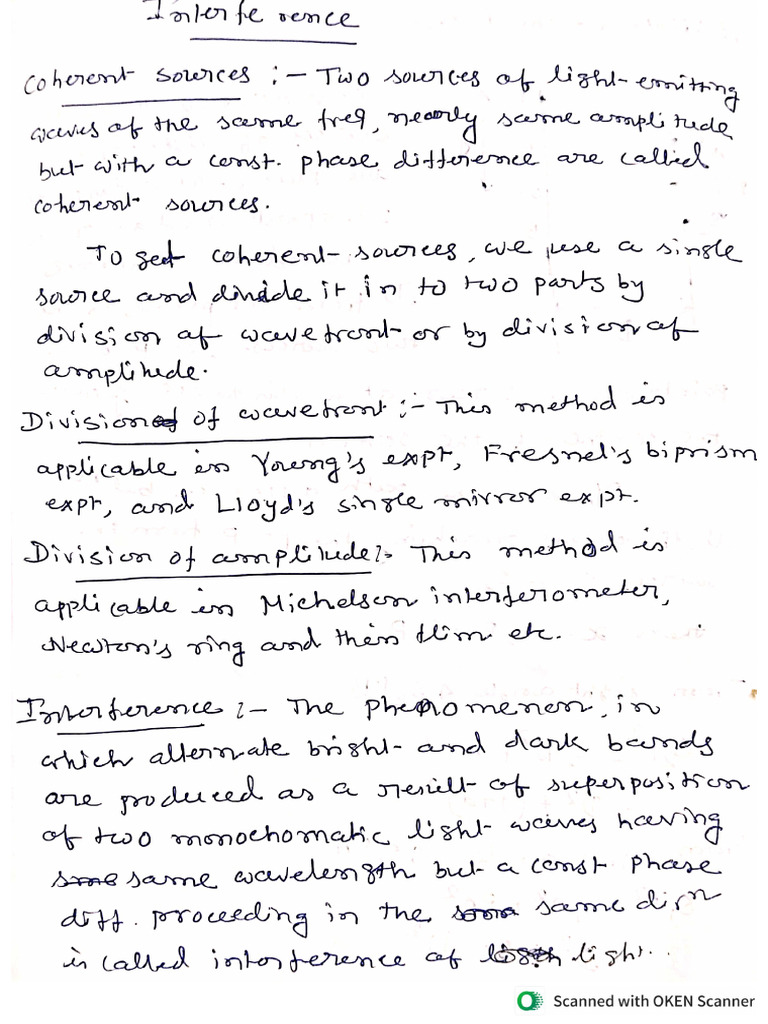 Interference
Coherent sources :- Two sources of light emitting
waves of the same freq, nearly same amplitude
but with a const. phase difference are called
coherent sources.
To get coherent sources, we use a single
source and divide it in to two parts by
division of wavefront or by division of
amplitude.
Division of wavefront :- This method is
applicable in Young's expt, Fresnel's biprism
expt, and Lloyd's single mirror expt.
Division of amplitude :- This method is
applicable in Michelson interferometer,
Newton's ring and thin flim etc.
Interference :- The phenomenon in
which alternate bright and dark bands
are produced as a result of superposition
of two monochomatic light waves having
same wavelength but a const phase
diff. proceeding in the same dirn
is called interference of light.
Scanned with OKEN Scanner